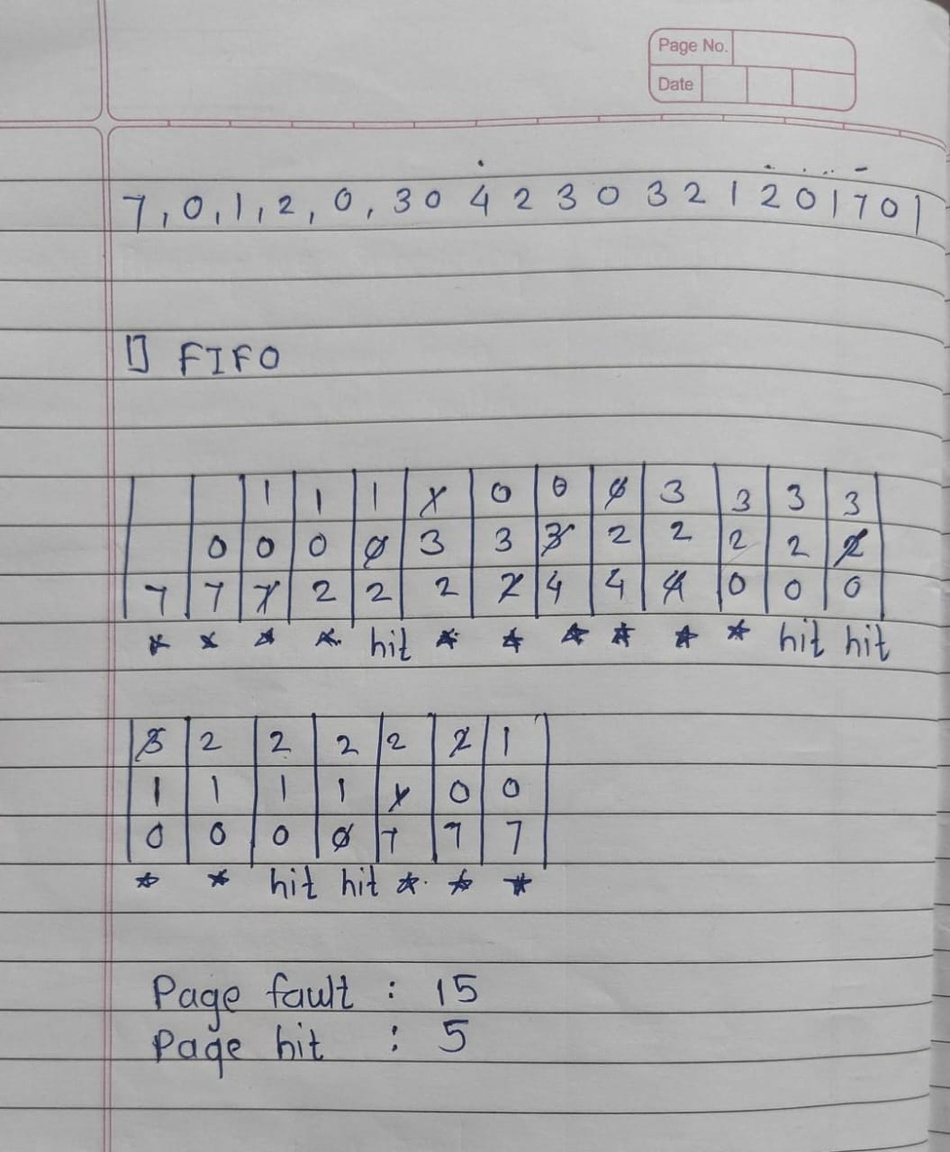 Page No.
Date
7, 0, 1, 2, 0, 3 0 4 2 3 0 3 2 1 2 0 1 7 0 1
1] FIFO
1 1 1 1 0 0 0 3 3 3 3
0 0 0 0 3 3 3 2 2 2 2 2
7 7 7 2 2 2 2 4 4 4 0 0 0
* * * * hit * * * * * * hit hit
3 2 2 2 2 2 1
1 1 1 1 1 0 0
0 0 0 0 7 7 7
* * hit hit * * *
Page fault : 15
Page hit : 5